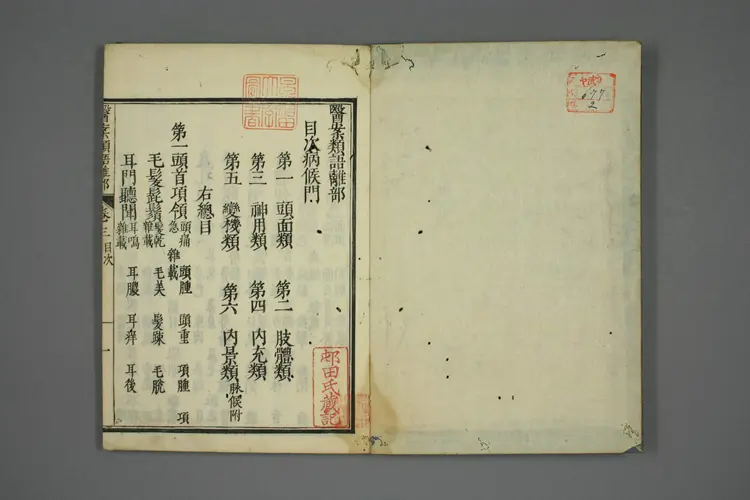 醫案類語離部
目次病候門
第一 頭面類 第二 肢體類
第三 神用類 第四 内充類
第五 變機類 第六 内景類 脉候附
右總目
第一頭首項領 頭痛 雜載 頭腫 頭重 項腫 項
急
毛髮髭鬚 髮乾 雜載 毛美 髮疎 毛脱
耳門聽聞 耳鳴 雜載 耳膿 耳痒 耳後
醫案類語離部 卷三目次 一
邨田氏藏記
677
2